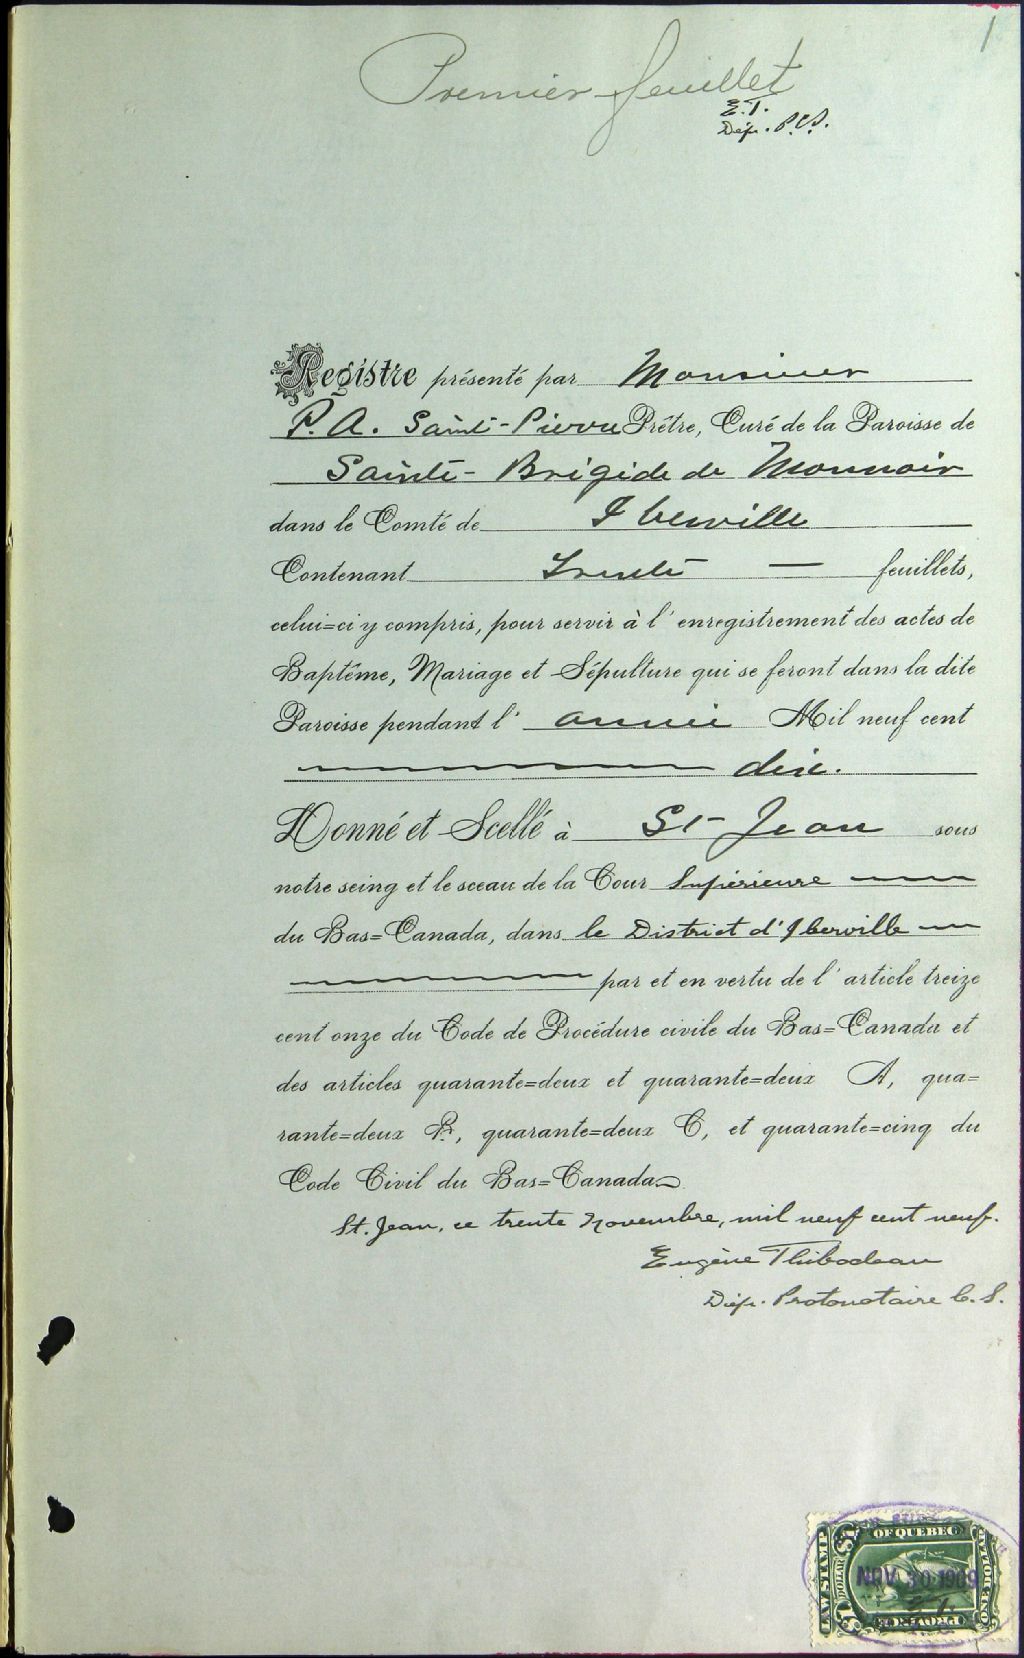 1
Premier feuillet
E.T.
Dép. P.C.S.
Registre présenté par Monsieur
P. A. Saint-Pierre Prêtre, Curé de la Paroisse de
Sainte-Brigide de Monnoir
dans le Comté de Iberville
Contenant Trente — feuillets,
celui=ci y compris, pour servir à l'enregistrement des actes de
Baptême, Mariage et Sépulture qui se feront dans la dite
Paroisse pendant l'année Mil neuf cent
dix.
Donné et Scellé à St-Jean sous
notre seing et le sceau de la Cour Supérieure
du Bas=Canada, dans le District d'Iberville
par et en vertu de l'article treize
cent onze du Code de Procédure civile du Bas=Canada et
des articles quarante=deux et quarante=deux A, qua=
rante=deux B, quarante=deux C, et quarante=cinq du
Code Civil du Bas=Canada
St. Jean, ce trente Novembre, mil neuf cent neuf.
Eugène Thibodeau
Dép. Protonotaire C. S.
OF QUEBEC
LAW STAMP
$1
DOLLAR
$1
ONE DOLLAR
NOV 30 1909
E.T.
PROVINCE